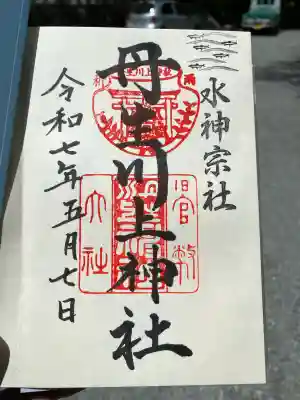 水神宗社
丹生川上神社
令和七年五月七日
旧官幣
大社